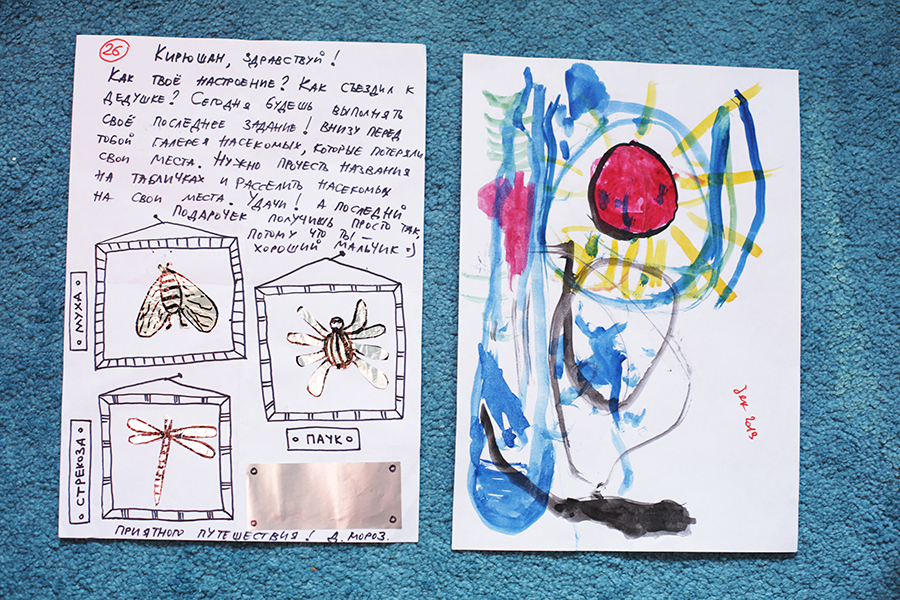 26
Кирюшан, здравствуй!
Как твоё настроение? Как съездил к
дедушке? Сегодня будешь выполнять
своё последнее задание! Внизу перед
тобой галерея насекомых, которые потеряли
свои места. Нужно прочесть названия
на табличках и расселить насекомых
на свои места. Удачи! А последний
подарочек получишь просто так,
потому что ты —
хороший мальчик =)
МУХА
ПАУК
СТРЕКОЗА
Приятного путешествия! Д. Мороз.
Дек 2013